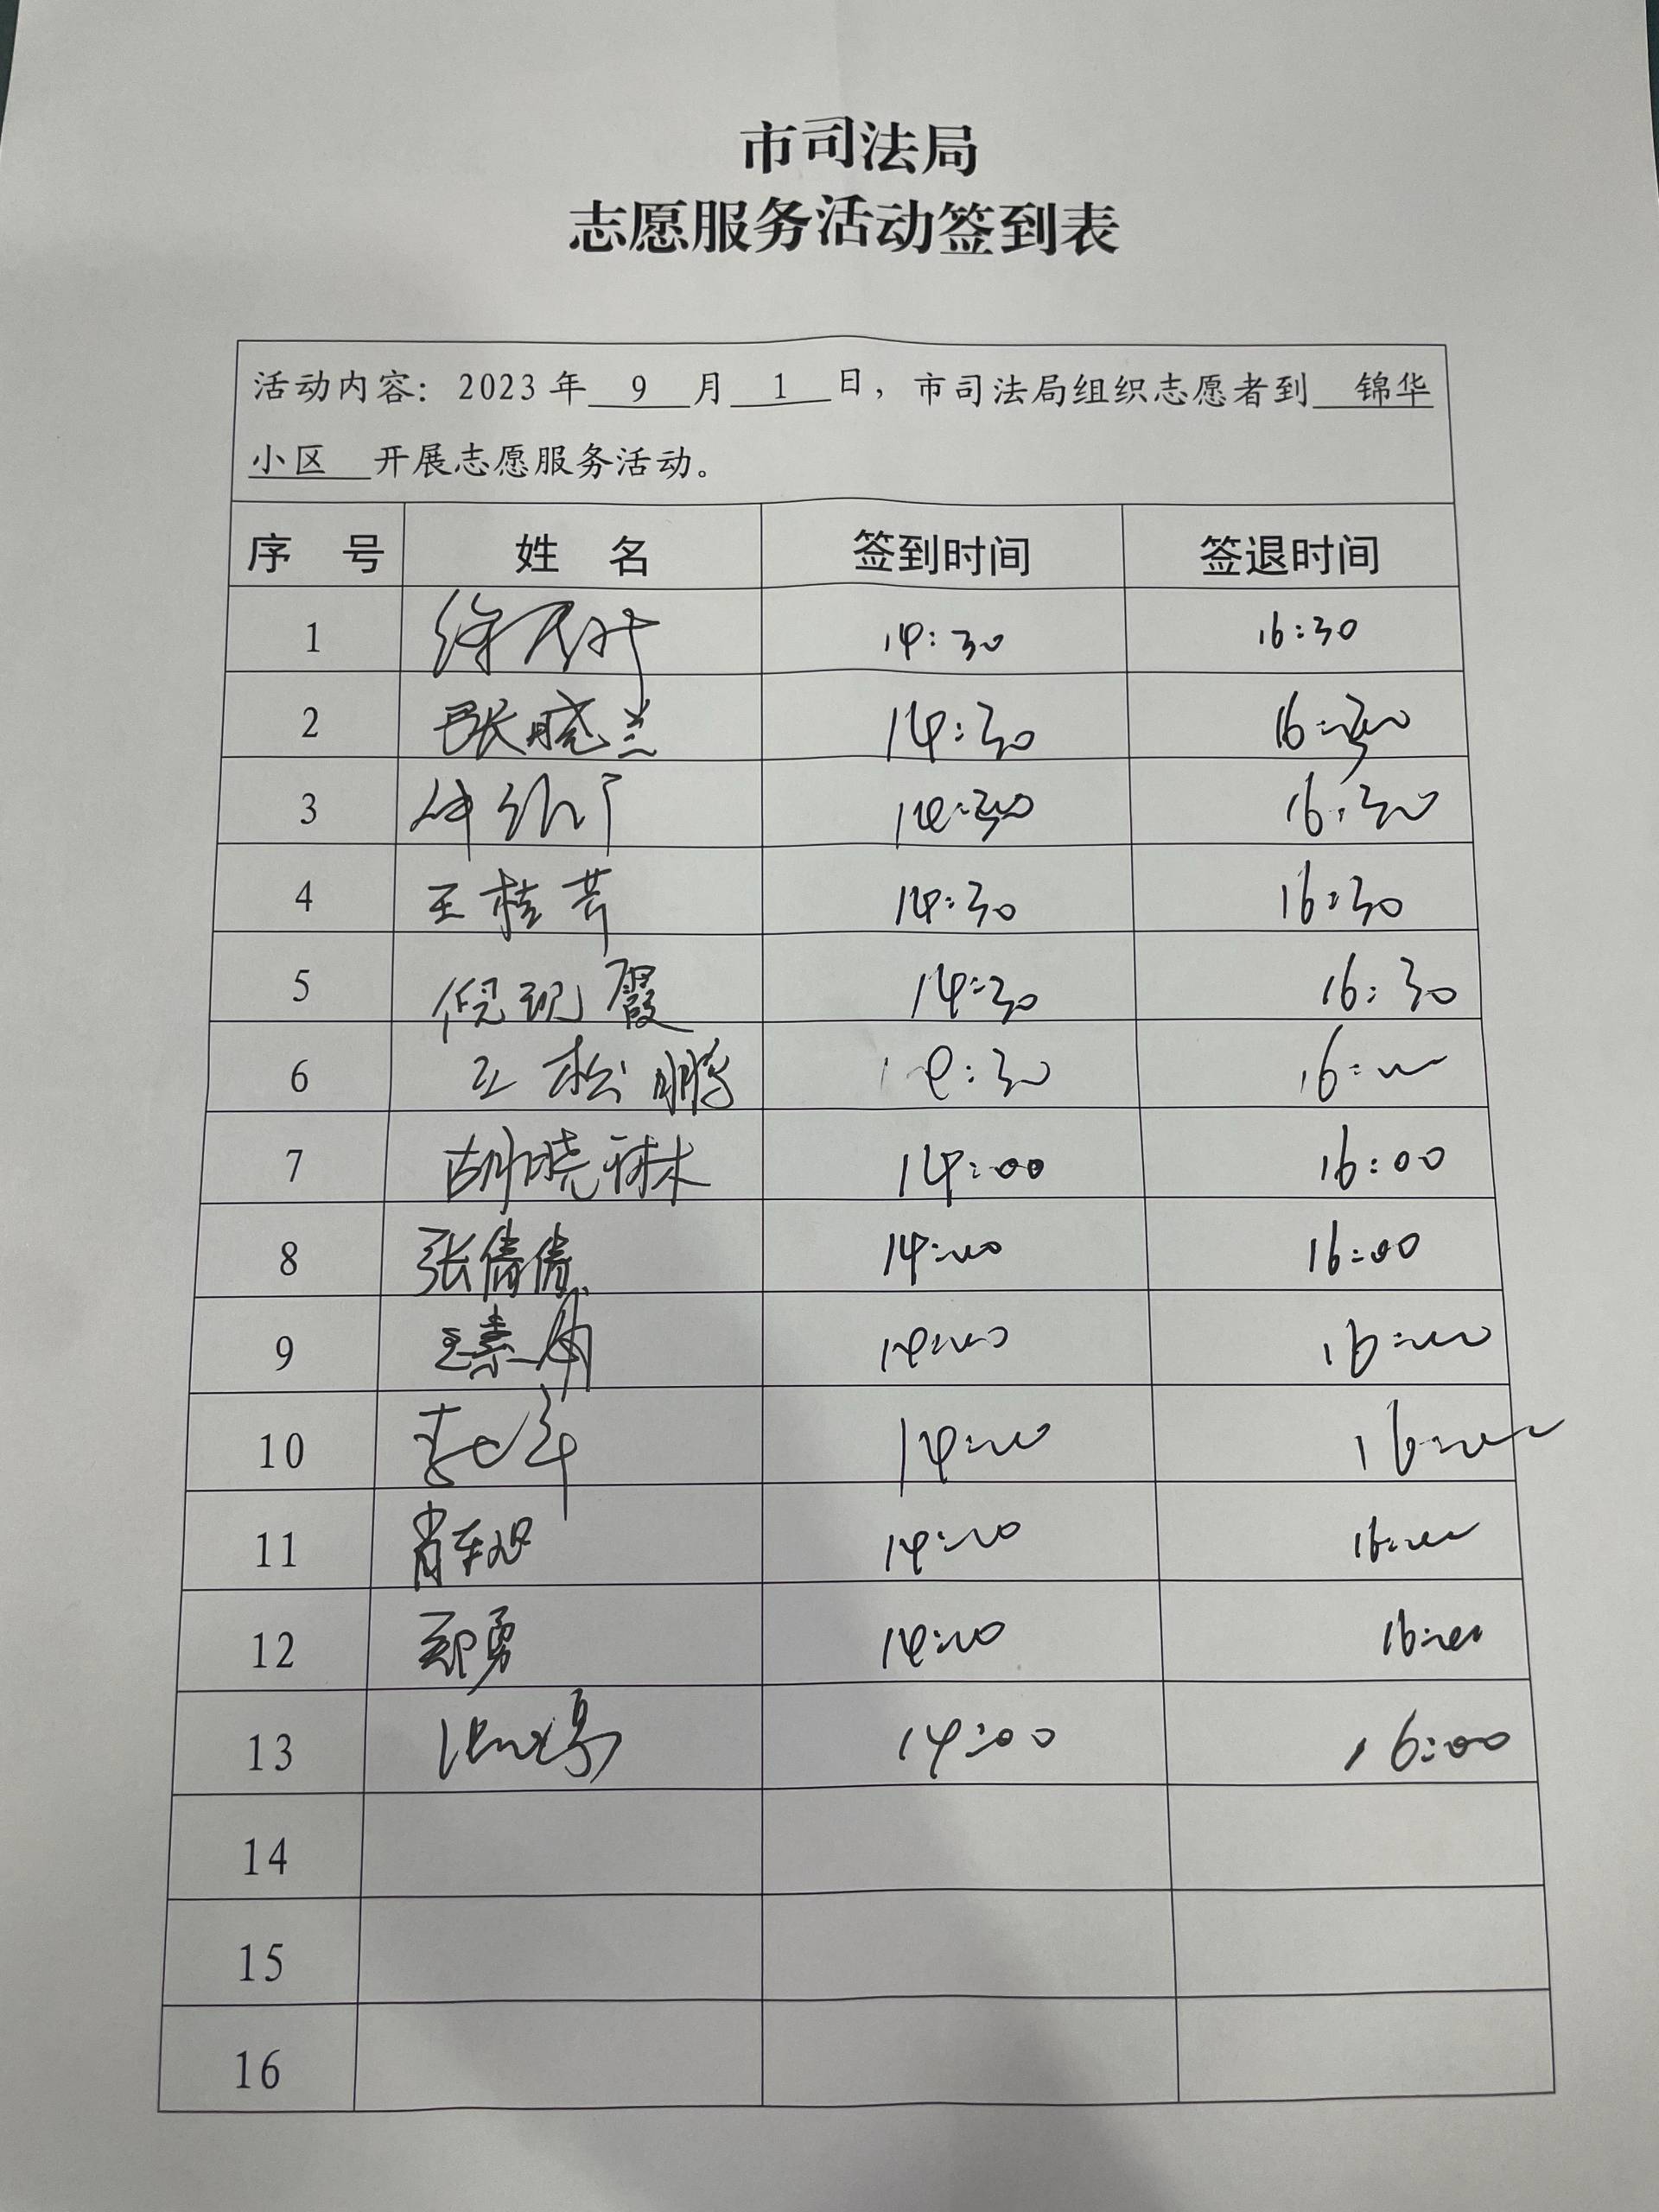 市司法局
志愿服务活动签到表
活动内容：2023年 9 月 1 日，市司法局组织志愿者到 锦华
小区 开展志愿服务活动。
序 号 姓 名 签到时间 签退时间
1 14:30 16:30
2 张晓兰 14:30 16:30
3 14:30 16:30
4 王桂芳 14:30 16:30
5 倪砚霞 14:30 16:30
6 王松鹏 14:30 16:00
7 胡晓琳 14:00 16:00
8 张倩倩 14:00 16:00
9 14:00 16:00
10 14:00 16:00
11 14:00 16:00
12 郑勇 14:00 16:00
13 14:00 16:00
14
15
16